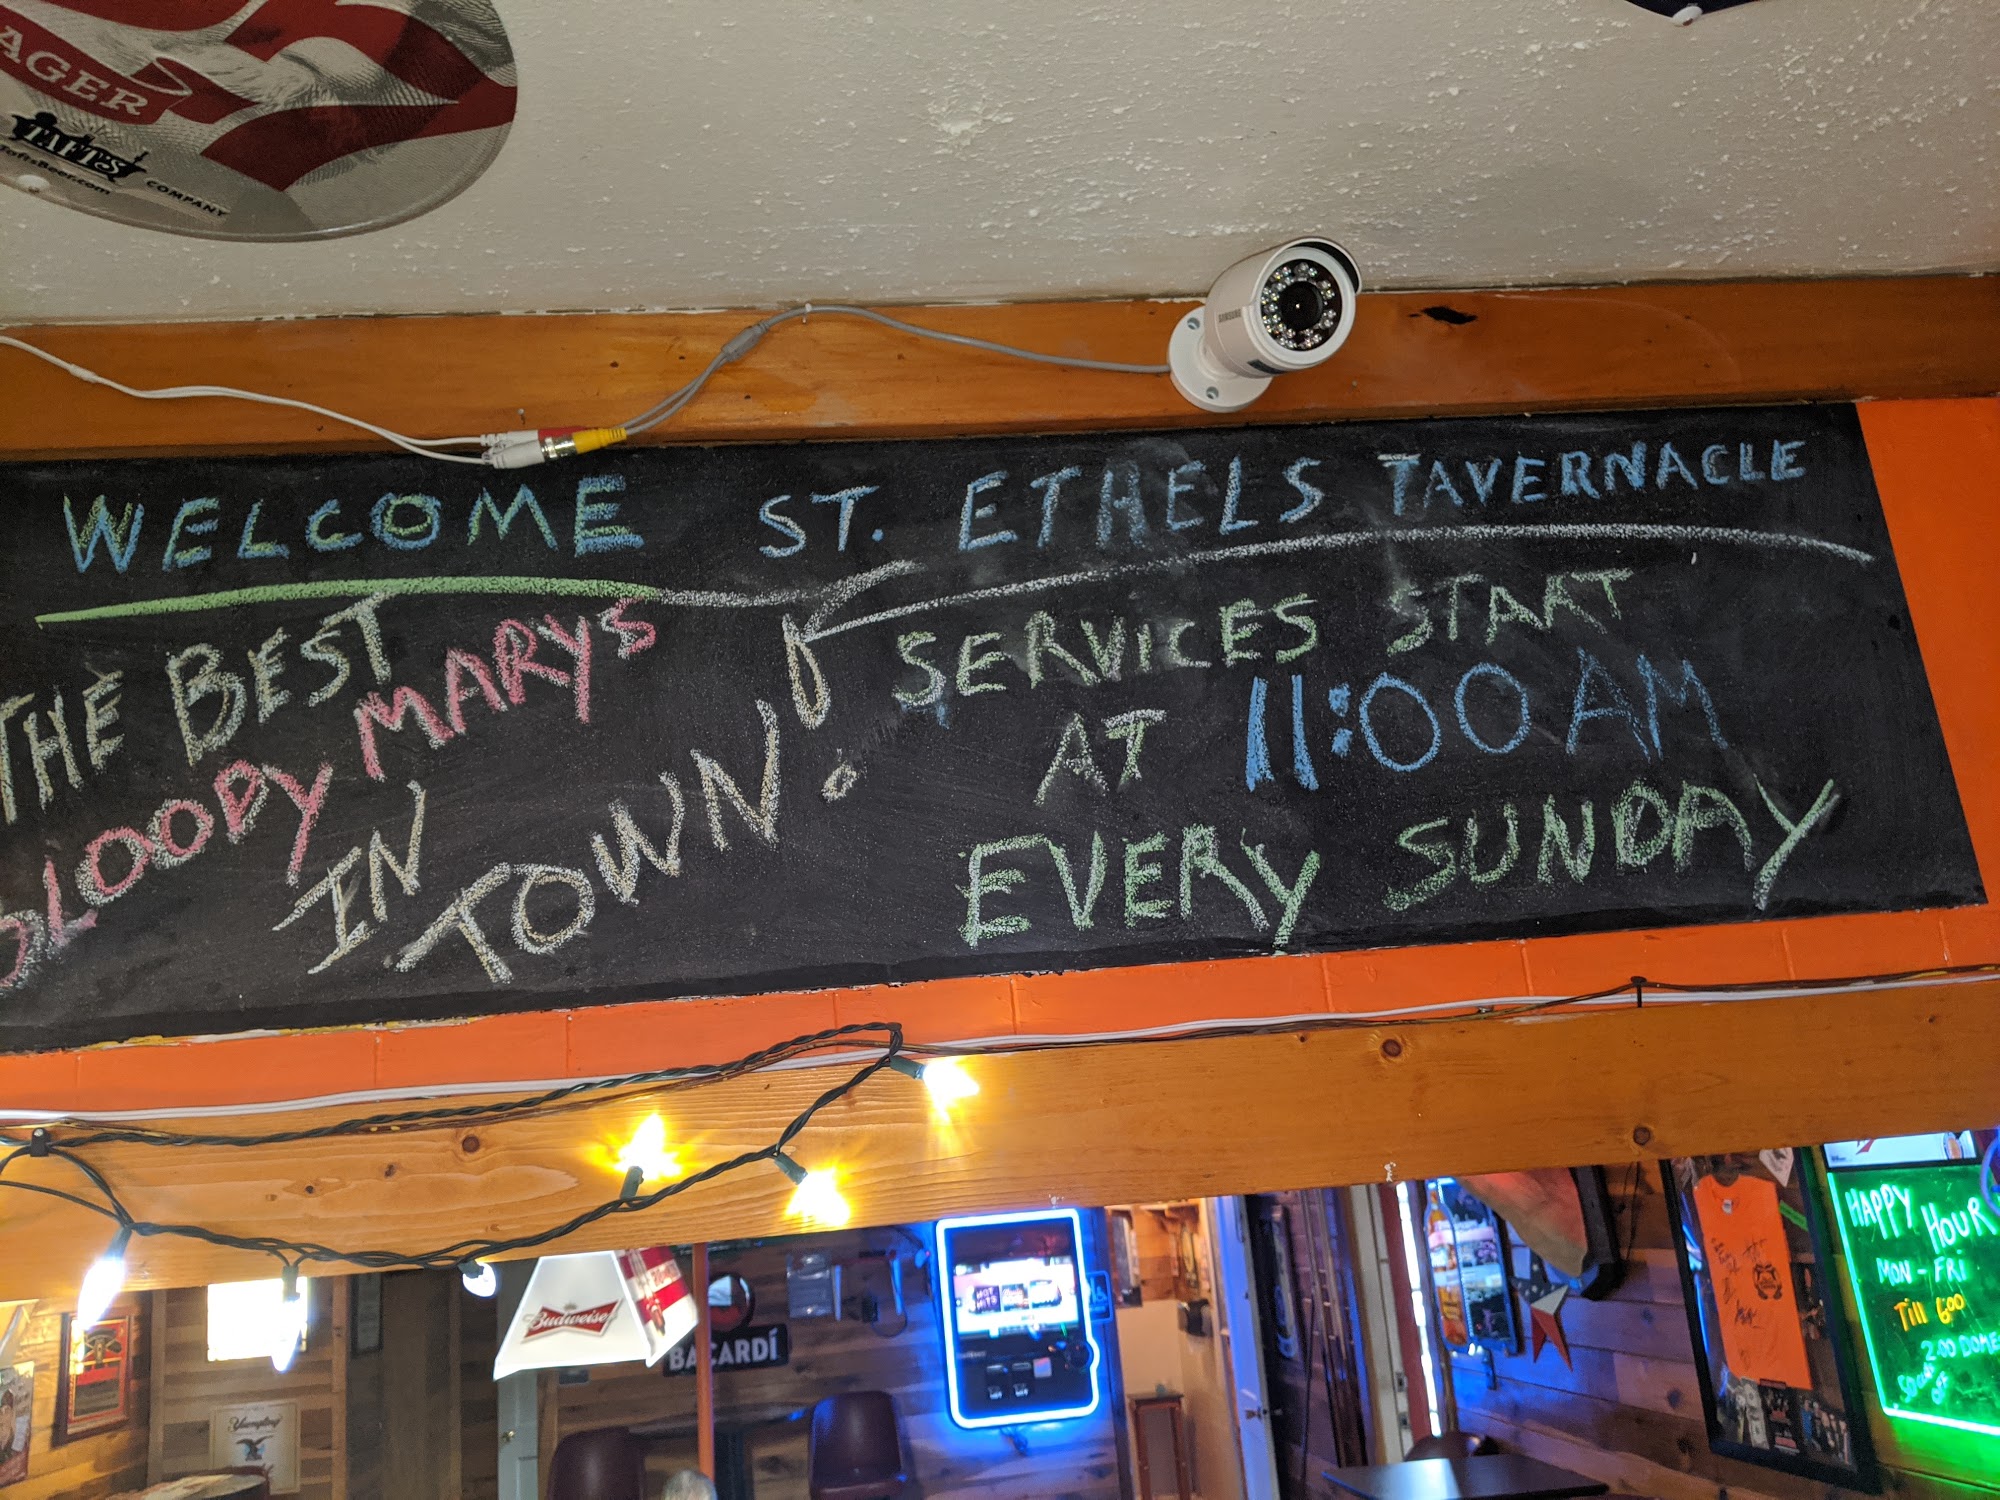 AGER
TAFT'S
TaftsBeer.com
COMPANY
SAMSUNG
WELCOME ST. ETHELS TAVERNACLE
THE BEST
BLOODY MARYS
IN
TOWN!
SERVICES START
AT 11:00 AM
EVERY SUNDAY
Budweiser
BACARDÍ
Yuengling
HAPPY HOUR
MON - FRI
Till 6:00
2.00 DOME